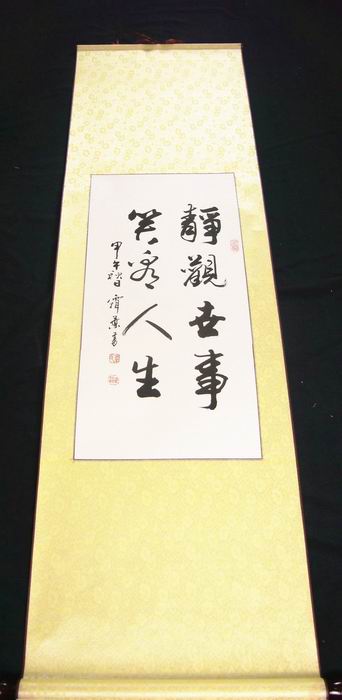 靜觀世事
笑看人生
甲午秋日 書